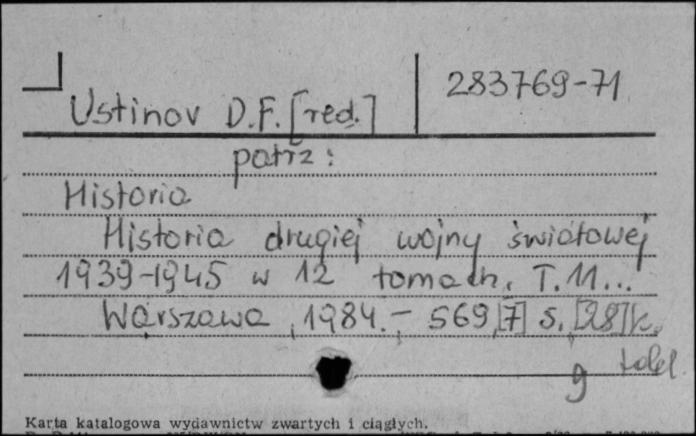 283769-71
Ustinov D.F. [red.]
patrz:
Historia
Historia drugiej wojny światowej
1939-1945 w 12 tomach. T.11...
Warszawa, 1984.- 569,[7] s., [28] k.
9 tabl.
Karta katalogowa wydawnictw zwartych i ciągłych.